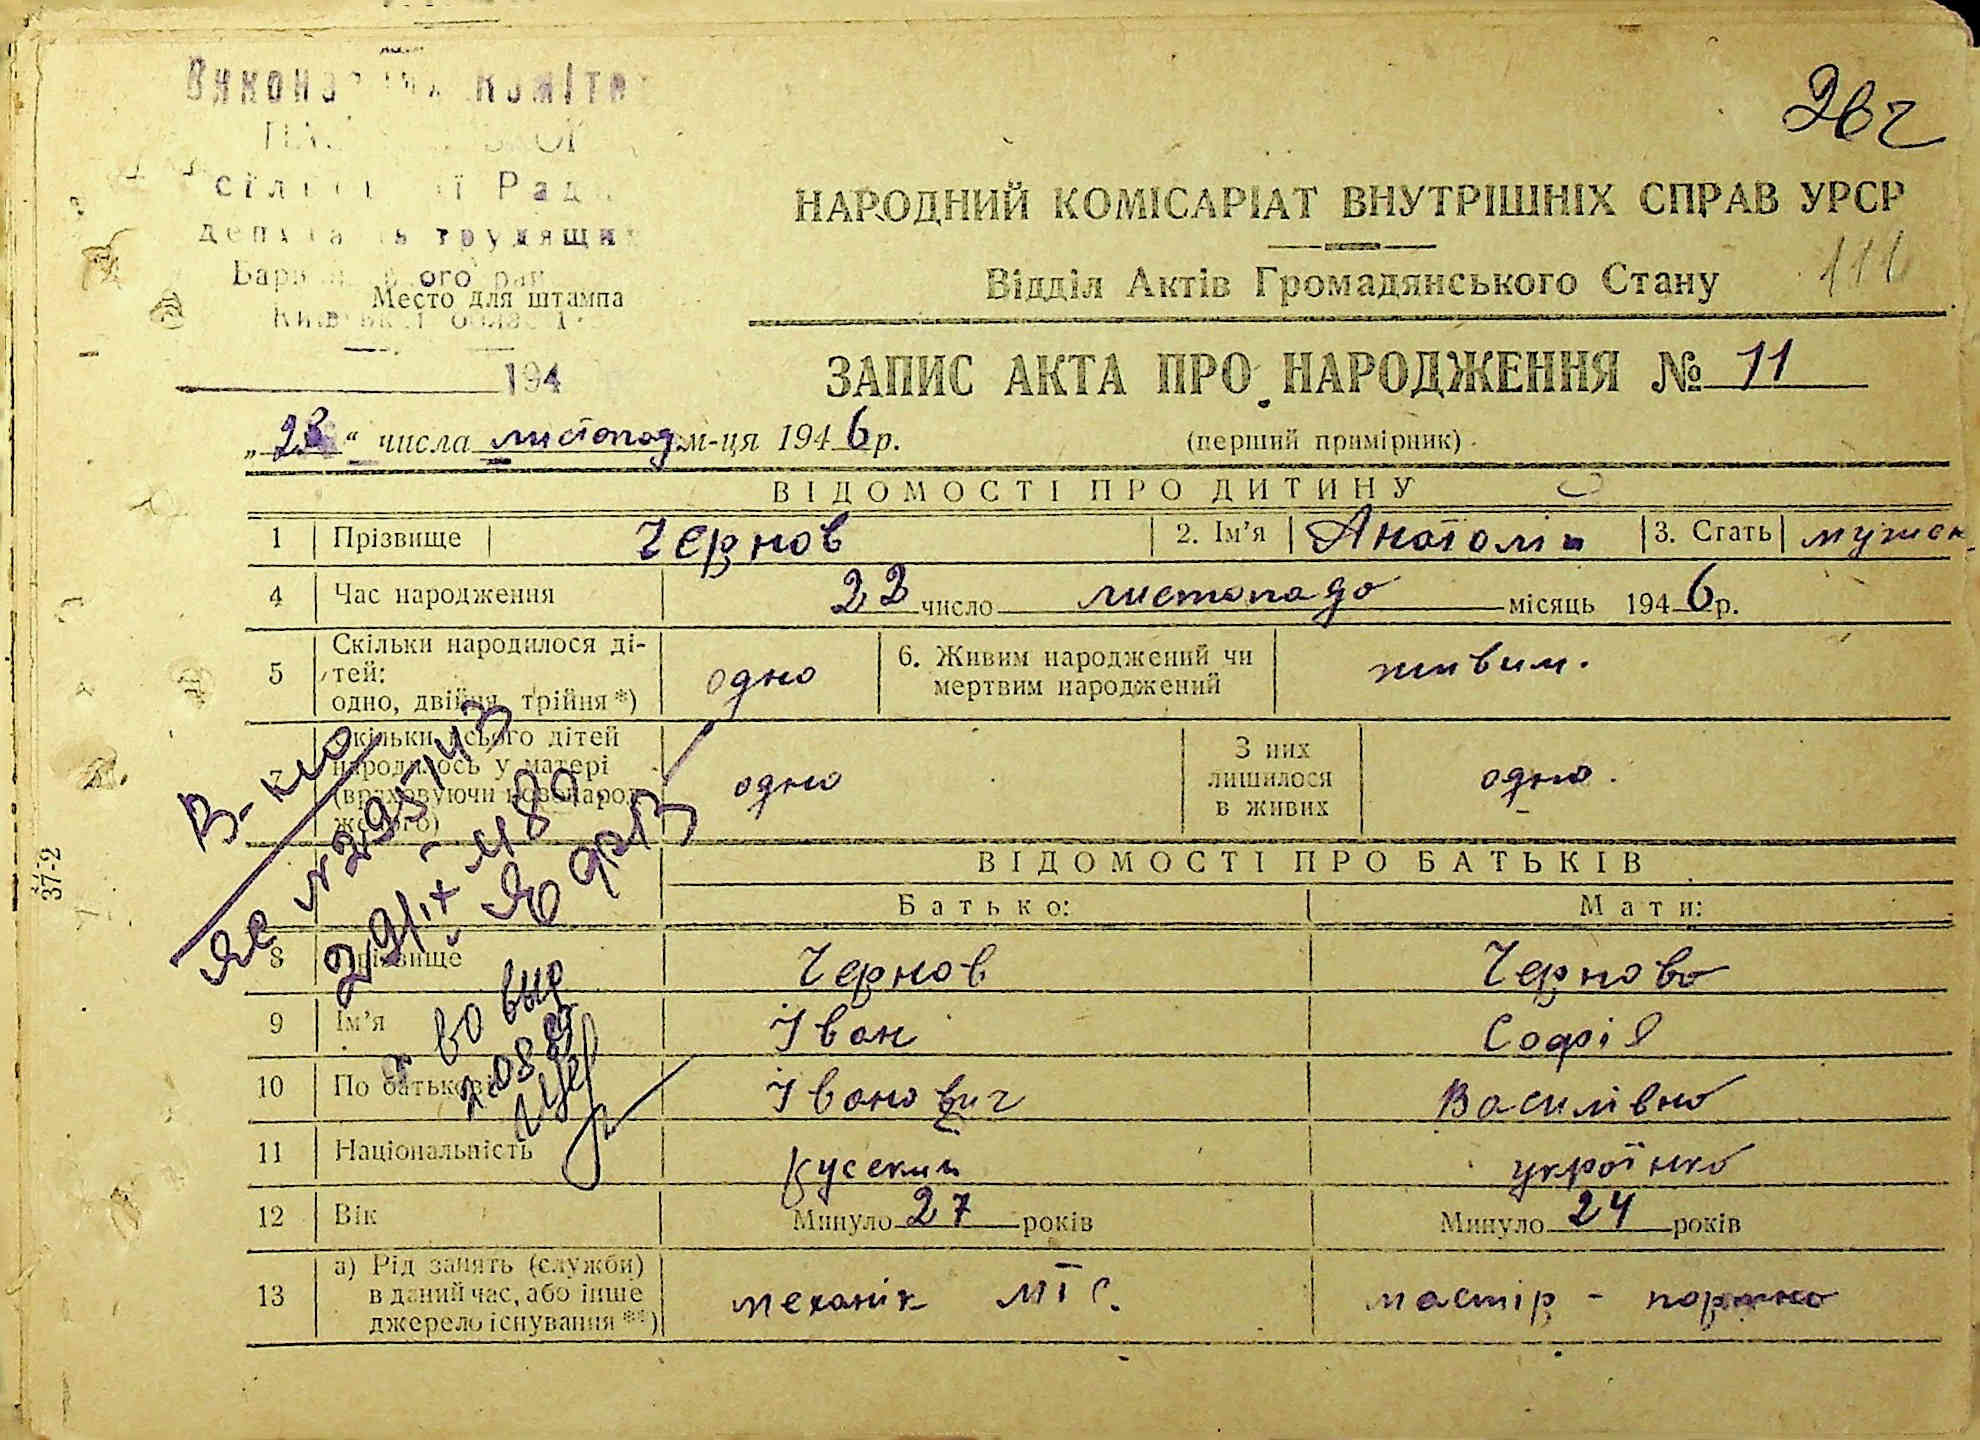 Виконавчий Комітет
сільської Ради
депутатів трудящих
Київської області
Место для штампа
194
2вг
111
НАРОДНИЙ КОМІСАРІАТ ВНУТРІШНІХ СПРАВ УРСР
Відділ Актів Громадянського Стану
ЗАПИС АКТА ПРО НАРОДЖЕННЯ № 11
„23“ числа листопад м-ця 1946 р.
(перший примірник)
ВІДОМОСТІ ПРО ДИТИНУ
1 Прізвище Чернов 2. Ім'я Анатолій 3. Стать мужск.
4 Час народження 22 число листопада місяць 1946 р.
5 Скільки народилося ді-
тей:
одно, двійня, трійня*) одно
6. Живим народжений чи
мертвим народжений живим.
7 Скільки всього дітей
народилось у матері
(враховуючи новонарод-
женого) одно
З них
лишилося
в живих одно.
ВІДОМОСТІ ПРО БАТЬКІВ
Батько: Мати:
8 Прізвище Чернов Чернова
9 Ім'я Іван Софія
10 По батькові Іванович Василівна
11 Національність русский українка
12 Вік Минуло 27 років Минуло 24 років
13 а) Рід занять (служби)
в даний час, або інше
джерело існування**) механік МТС. мастір -
37-2